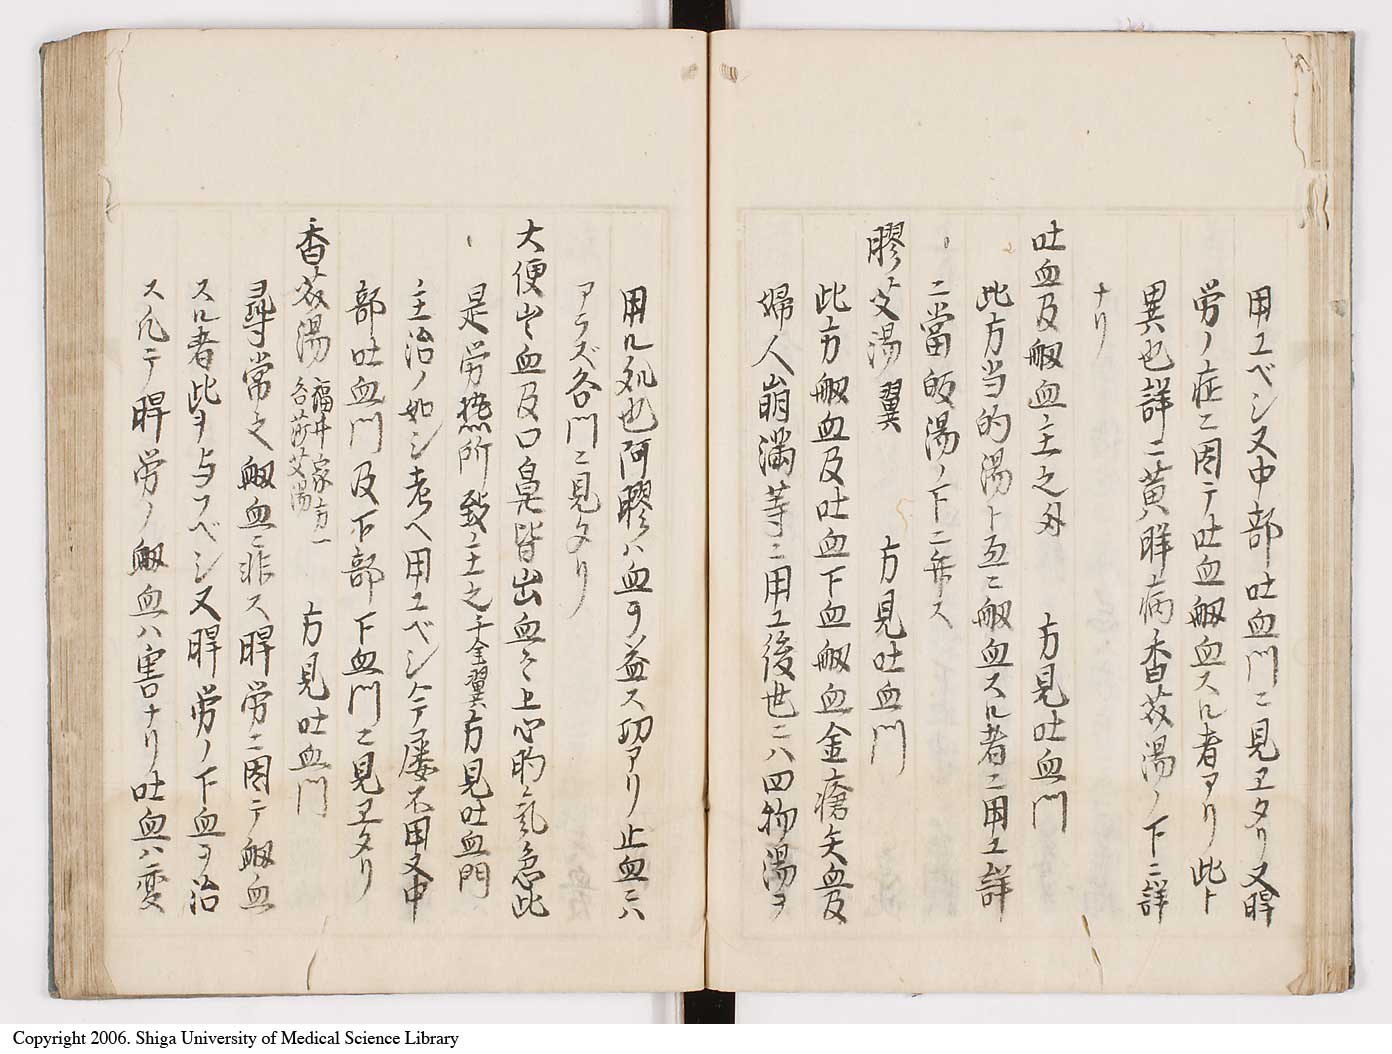 用ユベシ又中部吐血門ニ見ヱタリ又睅
労ノ症ニ因テ吐血衂血スル者アリ此ト
異也詳ニ黄胖病香茸湯ノ下ニ詳
ナリ
吐血及衂血主之外 方見吐血門
此方当的湯ト互ニ衂血スル者ニ用ユ詳
ニ當皈湯ノ下ニ弁ス
膠艾湯 翼 方見吐血門
此方衂血及吐血下血衂血金瘡失血及
婦人崩満等ニ用ユ後世ニハ四物湯ヲ
用ル処也阿膠ハ血ヲ益ス功アリ止血ニハ
アラズ各門ニ見タリ
大便出血及口鼻皆出血々上心胸気急此
是労熱所致主之 千金翼 方見吐血門
主治ノ如シ考ヘ用ユベシ今屡不用又中
部吐血門及下部下血門ニ見ヱタリ
香茸湯 福井家方一名莎艾湯 方見吐血門
尋常之衂血ニ非ス睅労ニ因テ衂血
スル者此ヲ与フベシ又睅労ノ下血ヲ治
ス凡テ睅労ノ衂血ハ害ナリ吐血ハ変
Copyright 2006. Shiga University of Medical Science Library